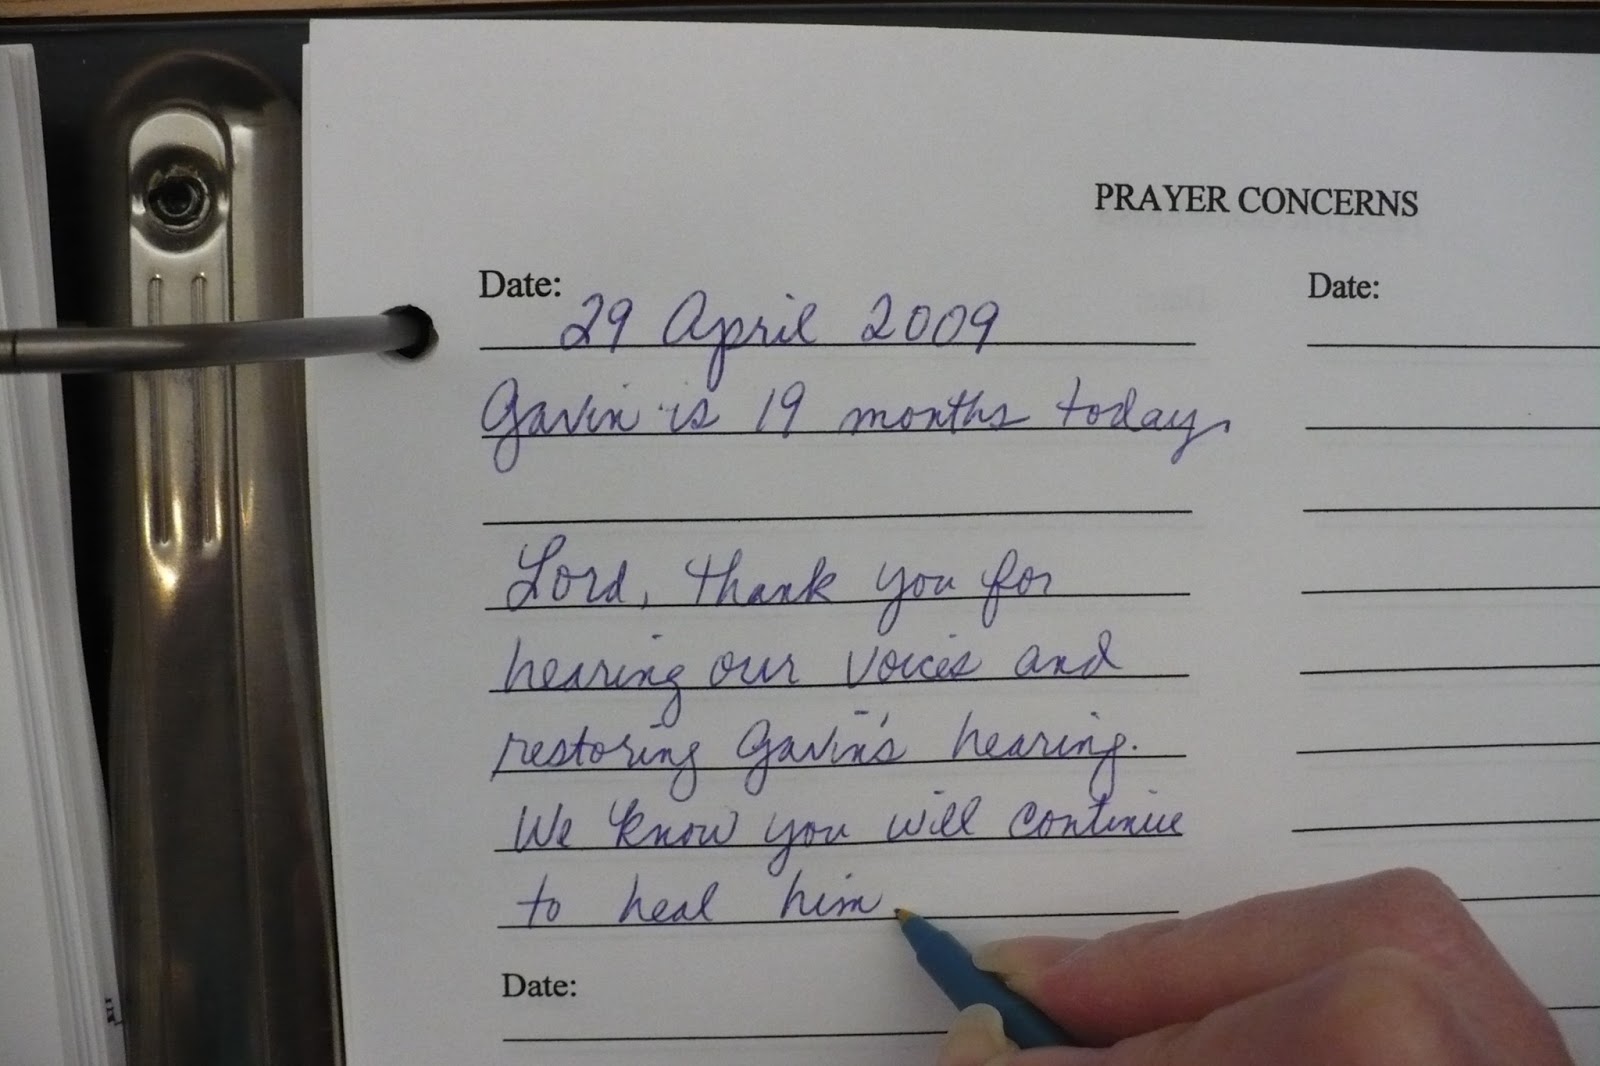 PRAYER CONCERNS
Date:
29 April 2009
Gavin is 19 months today.
Lord, thank you for
hearing our voices and
restoring Gavin's hearing.
We know you will continue
to heal him
Date:
Date: